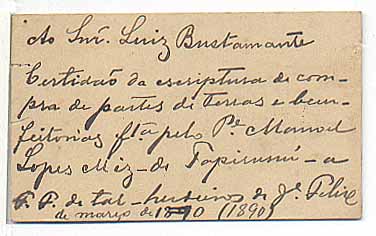 Ao Snr. Luiz Bustamante
Certidão da escriptura de com-
pra de partes de terras e bem-
feitorias fta pelo Pe. Manoel
Lopes Miz - de Tapirussú - a
F. F. de tal - herdeiros de Je. Felix
de março de 1890 (1890)